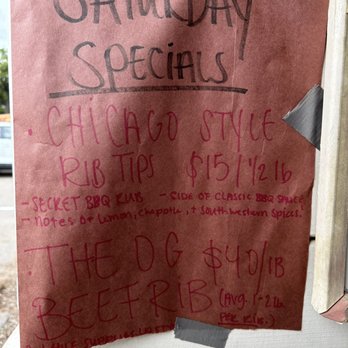 SATURDAY
SPECIALS
· CHICAGO STYLE
RIB TIPS $15/1/2 lb
- SECRET BBQ RUB - SIDE OF CLASSIC BBQ SAUCE
- Notes of Lemon, chipotle, + Southwestern Spices.
· THE OG $40/lB
BEEF RIB (Avg. 1-2 lb
PER Rib.)